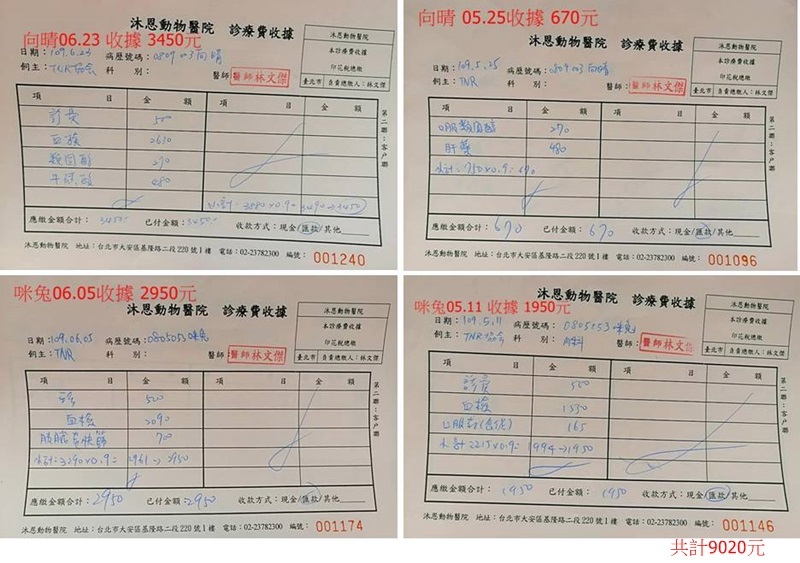 向晴06.23 收據 3450元
沐恩動物醫院 診療費收據
沐恩動物醫院
本診療費收據
印花稅總繳
臺北市 自責總繳人：林文傑
日期：109.6.23 病歷號碼：0809003向晴
飼主：TNR協會 科 別： 醫師：醫師林文傑
項 目 金 額 項 目 金 額
診費 500
血檢 2630
類固醇 270
牛磺酸 480
小計=3880x0.9= 3490→3450
第二聯：客戶聯
應繳金額合計：3450 已付金額：3450 收款方式：現金/匯款/其他
沐恩動物醫院 地址：台北市大安區基隆路二段220號1樓 電話：02-23782300 編號： 001240
向晴 05.25收據 670元
沐恩動物醫院 診療費收據
沐恩動物醫院
本診療費收據
印花稅總繳
臺北市 自責總繳人：林文傑
日期：109.5.25 病歷號碼：0809003向晴
飼主：TNR 科 別： 醫師：醫師林文傑
項 目 金 額 項 目 金 額
口服類固醇 270
肝藥 480
小計=750x0.9=670
第二聯：客戶聯
應繳金額合計：670 已付金額：670 收款方式：現金/匯款/其他
沐恩動物醫院 地址：台北市大安區基隆路二段220號1樓 電話：02-23782300 編號： 001096
咪兔06.05收據 2950元
沐恩動物醫院 診療費收據
沐恩動物醫院
本診療費收據
印花稅總繳
臺北市 自責總繳人：林文傑
日期：109.06.05 病歷號碼：0805053咪兔
飼主：TNR 科 別： 醫師：醫師林文傑
項 目 金 額 項 目 金 額
500
血檢 2090
700
小計=3290x0.9= 2961→2950
第二聯：客戶聯
應繳金額合計：2950 已付金額：2950 收款方式：現金/匯款/其他
沐恩動物醫院 地址：台北市大安區基隆路二段220號1樓 電話：02-23782300 編號： 001174
咪兔05.11 收據 1950元
沐恩動物醫院 診療費收據
沐恩動物醫院
本診療費收據
印花稅總繳
臺北市 自責總繳人：林文傑
日期：109.5.11 病歷號碼：0805053咪兔
飼主：TNR協會 科 別：內科 醫師：醫師林文傑
項 目 金 額 項 目 金 額
診費 500
血檢 1550
口服藥 165
小計=2215x0.9= 1994→1950
第二聯：客戶聯
應繳金額合計：1950 已付金額：1950 收款方式：現金/匯款/其他
沐恩動物醫院 地址：台北市大安區基隆路二段220號1樓 電話：02-23782300 編號： 001146
共計9020元